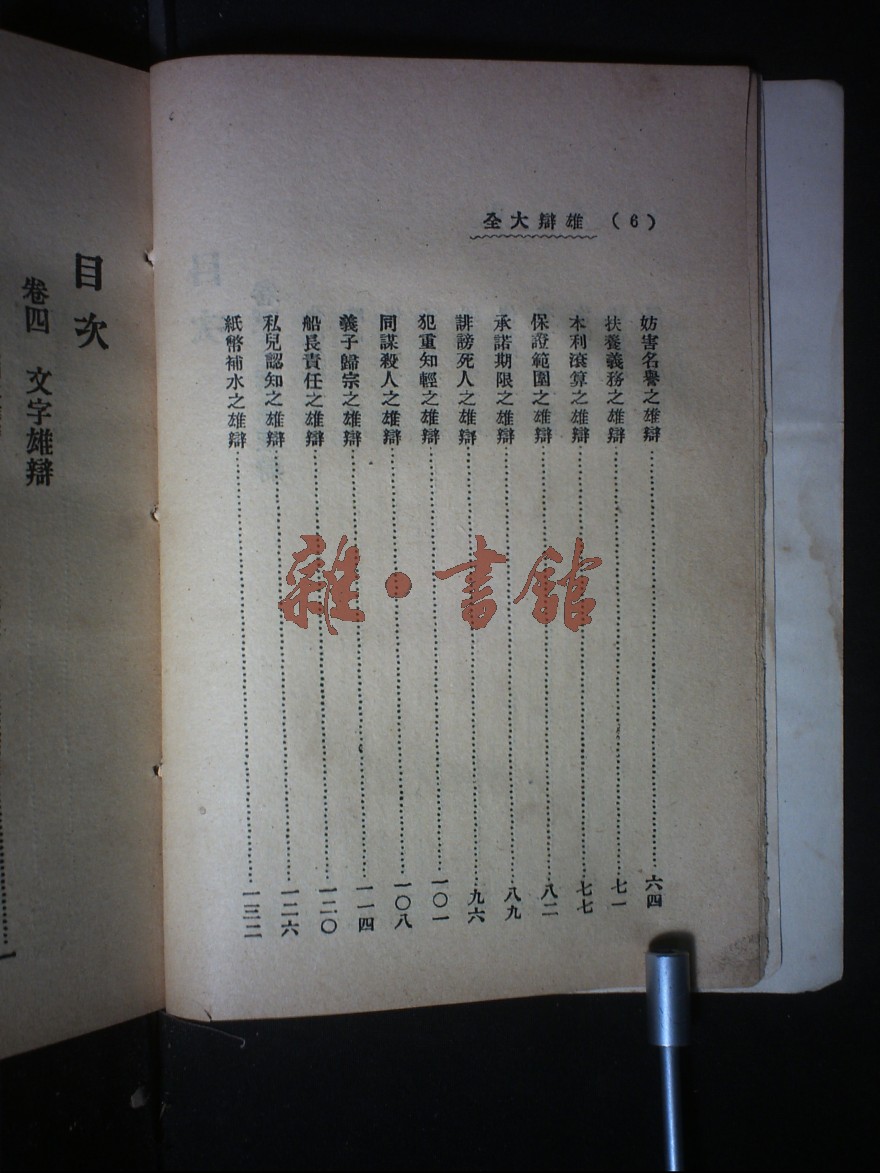 全大辯雄 (6)
妨害名譽之雄辯……六四
扶養義務之雄辯……七一
本利滾算之雄辯……七七
保證範圍之雄辯……八二
承諾期限之雄辯……八九
誹謗死人之雄辯……九六
犯重知輕之雄辯……一〇一
同謀殺人之雄辯……一〇八
義子歸宗之雄辯……一一四
船長責任之雄辯……一二〇
私兒認知之雄辯……一二六
紙幣補水之雄辯……一三二
目次
卷四 文字雄辯
雜·書館